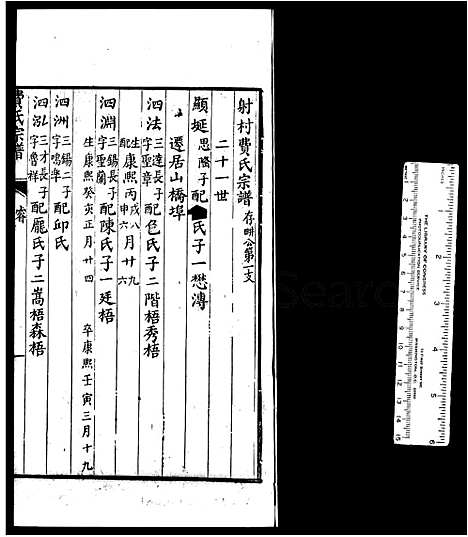 射村費氏宗譜 存畊公第二支
二十一世
顯娫 思隆子配 氏子一懋溥
遷居山橋埠
泗法 三達長子 字聖章 配包氏子二階梧秀梧
生康熙丙戌八月廿九
生康熙丙申六月廿六
泗淵 三錫長子 字聖蘭 配陳氏子一廷梧
生康熙癸亥正月廿四 卒康熙壬寅三月十九
泗洲 三錫二子 字鳴臯 配邱氏
泗泓 三才長子 字魯祥 配龎氏子二嵩梧森梧
費氏宗譜
THE LIBRARY OF CONGRESS